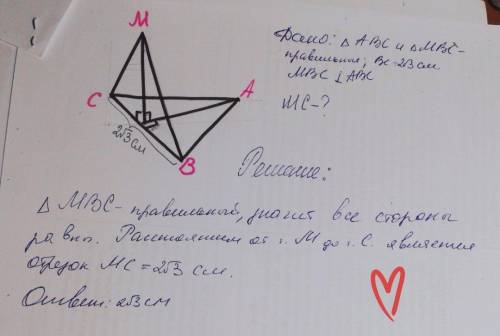 M
Дано: △ ABC и △ MBC-
правильные; BC=2√3 см
MBC ⊥ ABC
C
A
MC-?
2√3 см
B
Решение:
△ MBC- правильный, значит все стороны
равны. Расстоянием от т. M до т. C. является
отрезок MC = 2√3 см.
Ответ: 2√3 см